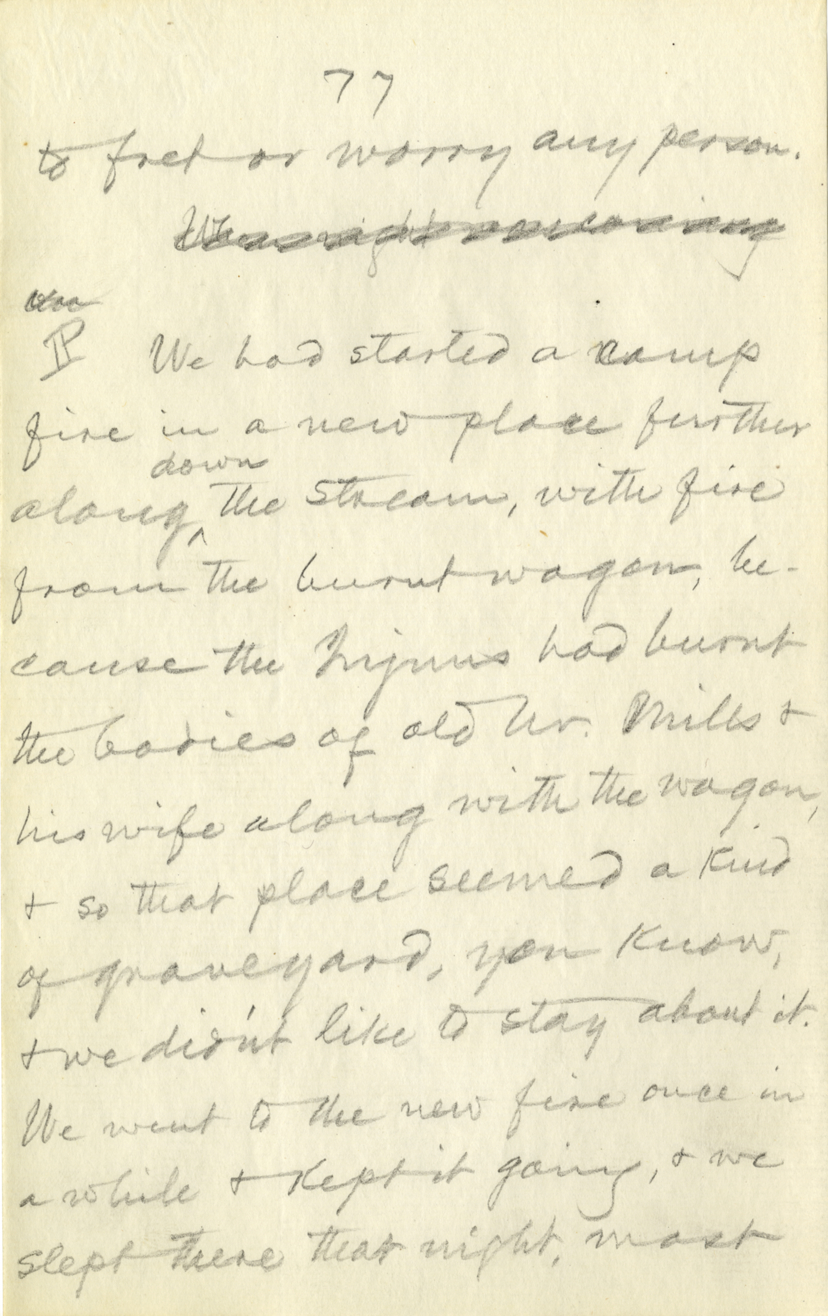 77
to fret or worry any person.
We had started a camp
fire in a new place further
down
along the stream, with fire
from the burnt wagon, be-
cause the Injuns had burnt
the bodies of old Mr. Mills &
his wife along with the wagon,
& so that place seemed a kind
of graveyard, you know,
& we didn't like to stay about it.
We went to the new fire once in
a while & kept it going, & we
slept there that night, most